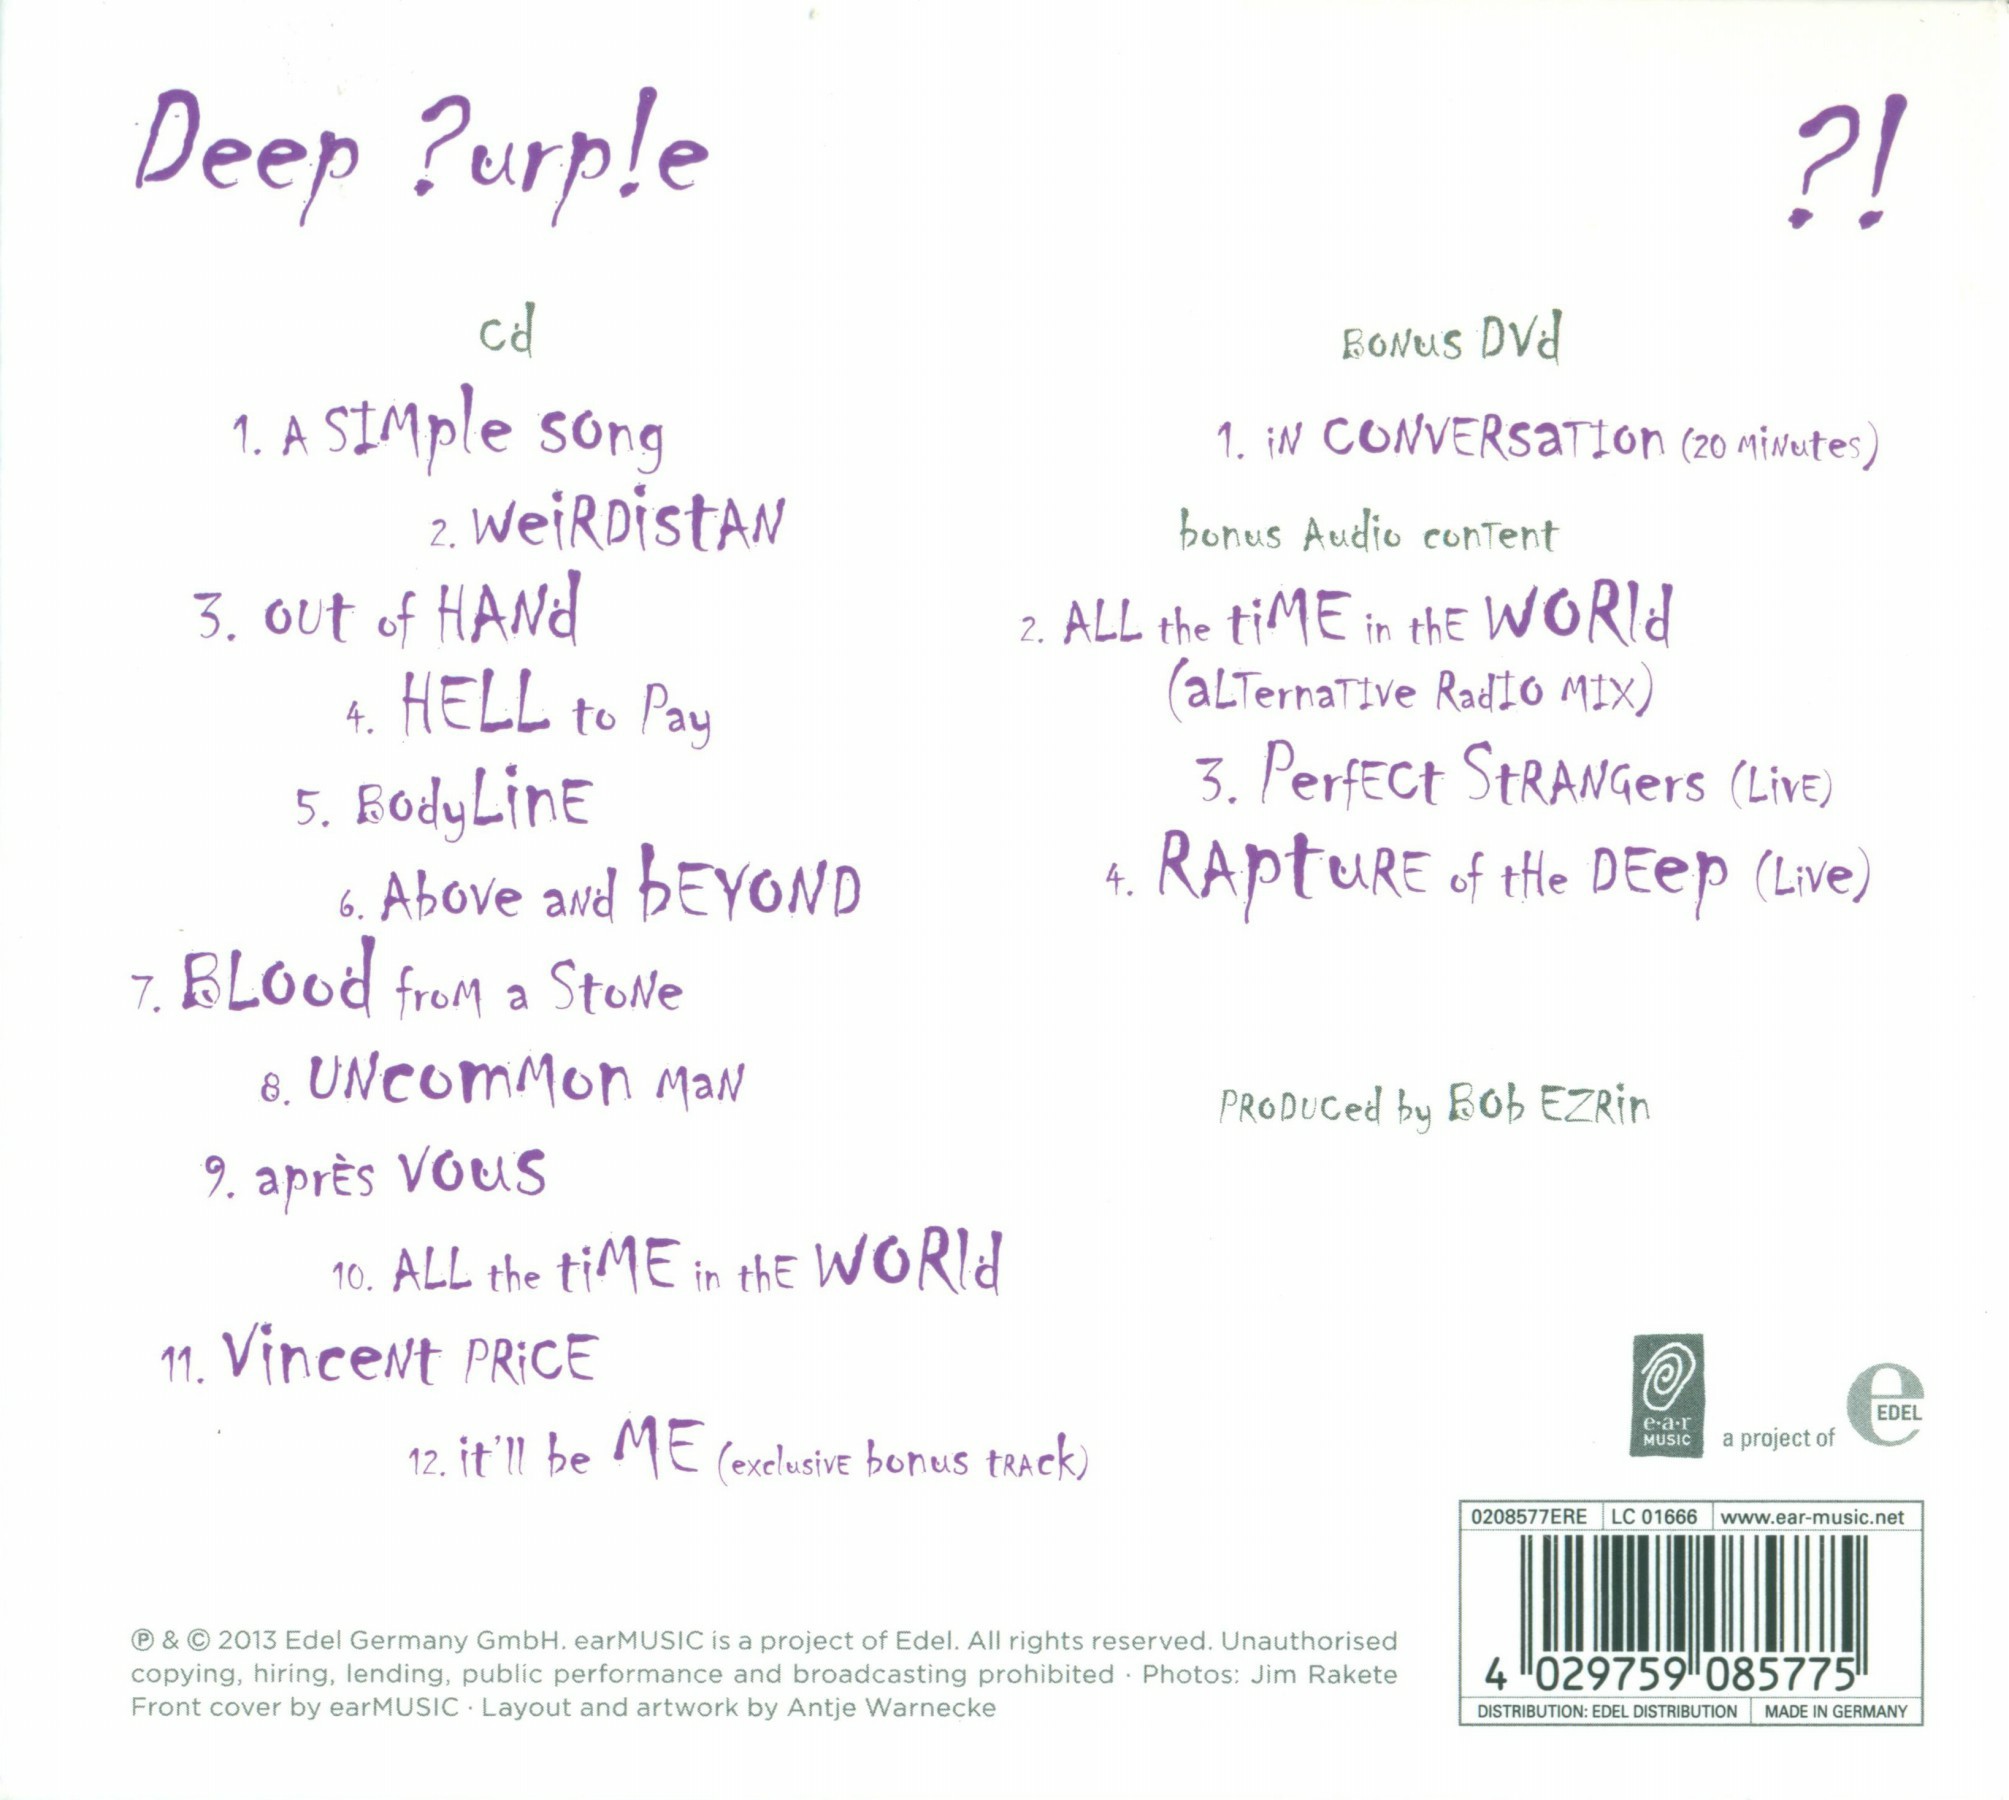 Deep ?urp!e
?!
cd
1. A SIMple song
2. WeiRDistAN
3. out of HANd
4. HELL to Pay
5. BodyLinE
6. Above and bEYOND
7. BLood froM a StoNe
8. UNcomMon MaN
9. aprÈs vous
10. ALL the tiME in thE WORld
11. VinceNt PRiCE
12. it'll be ME (exclusivE bonus tRAck)
BoNus DVd
1. iN CONVERsaTIon (20 MiNutes)
bonus Audio conTent
2. ALL the tiME in thE WORld
(aLTernaTIve RadIO MIX)
3. PerfECt StRANGers (LivE)
4. RAptuRE of tHe DEep (Live)
PRoDuCed by Bob EZRin
e·a·r
MUSIC
a project of
e
EDEL
0208577ERE LC 01666 www.ear-music.net
4 029759 085775
DISTRIBUTION: EDEL DISTRIBUTION MADE IN GERMANY
℗ & © 2013 Edel Germany GmbH. earMUSIC is a project of Edel. All rights reserved. Unauthorised
copying, hiring, lending, public performance and broadcasting prohibited · Photos: Jim Rakete
Front cover by earMUSIC · Layout and artwork by Antje Warnecke